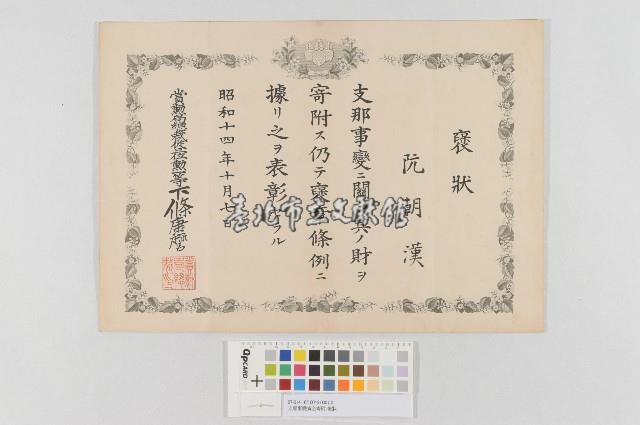 褒狀
阮朝漢
支那事變ニ關シ其ノ財ヲ
寄附ス仍テ褒章條例ニ
據リ之ヲ表彰セラル
昭和十四年十月七日
賞勳局總裁從三位勳二等下條康麿
臺北市立文獻館
QPCARD